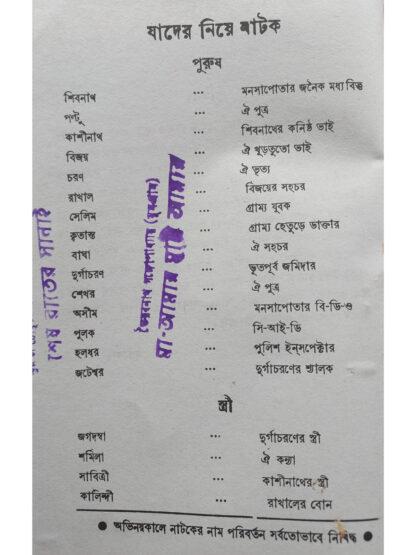 যাদের নিয়ে নাটক
পুরুষ
শিবনাথ ... মনসাপোতার জনৈক মধ্যবিত্ত
পল্টু ... ঐ পুত্র
কাশীনাথ ... শিবনাথের কনিষ্ঠ ভাই
বিজয় ... ঐ খুড়তুতো ভাই
চরণ ... ঐ ভৃত্য
রাখাল ... বিজয়ের সহচর
সেলিম ... গ্রাম্য যুবক
কৃতান্ত ... গ্রাম্য হেতুড়ে ডাক্তার
বাঘা ... ঐ সহচর
দুর্গাচরণ ... ভূতপূর্ব জমিদার
শেখর ... ঐ পুত্র
অসীম ... মনসাপোতার বি-ডি-ও
পুলক ... সি-আই-ডি
হলধর ... পুলিশ ইন্সপেক্টার
জটেশ্বর ... দুর্গাচরণের শ্যালক
শেষ রাতের সানাই
ভৈরবনাথ গঙ্গোপাধ্যায়
মা-আমার আমার
স্ত্রী
জগদম্বা ... দুর্গাচরণের স্ত্রী
শর্মিলা ... ঐ কন্যা
সাবিত্রী ... কাশীনাথের স্ত্রী
কালিন্দী ... রাখালের বোন
● অভিনয়কালে নাটকের নাম পরিবর্তন সর্বতোভাবে নিষিদ্ধ ●